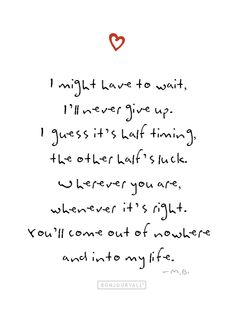 I might have to wait,
I'll never give up.
I guess it's half timing,
the other half's luck.
wherever you are,
whenever it's right.
You'll come out of nowhere
and into my life.
– M.B.
BONJOURVALL